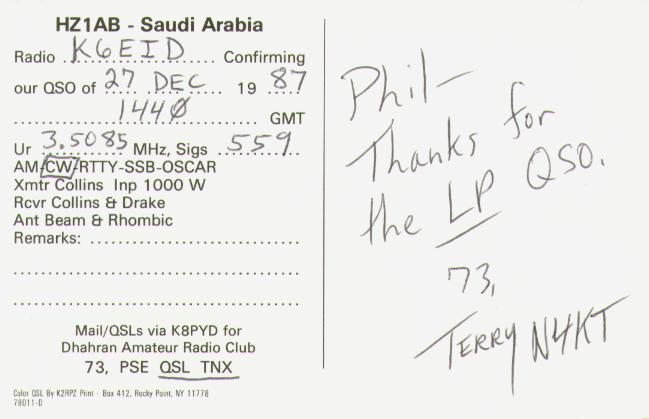 HZ1AB - Saudi Arabia
Radio K6EID Confirming
our QSO of 27 DEC 1987
1440 GMT
Ur 3.5085 MHz, Sigs 559
AM-CW-RTTY-SSB-OSCAR
Xmtr Collins Inp 1000 W
Rcvr Collins & Drake
Ant Beam & Rhombic
Remarks:
Mail/QSLs via K8PYD for
Dhahran Amateur Radio Club
73, PSE QSL TNX
Color QSL By K2RPZ Print - Box 412, Rocky Point, NY 11778
78011-D
Phil-
Thanks for
the LP QSO.
73,
TERRY N4KT